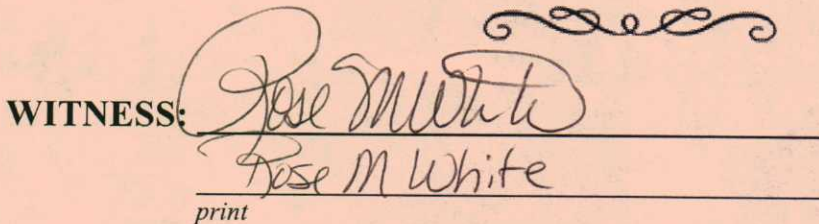 WITNESS: Rose M White
Rose M White
print